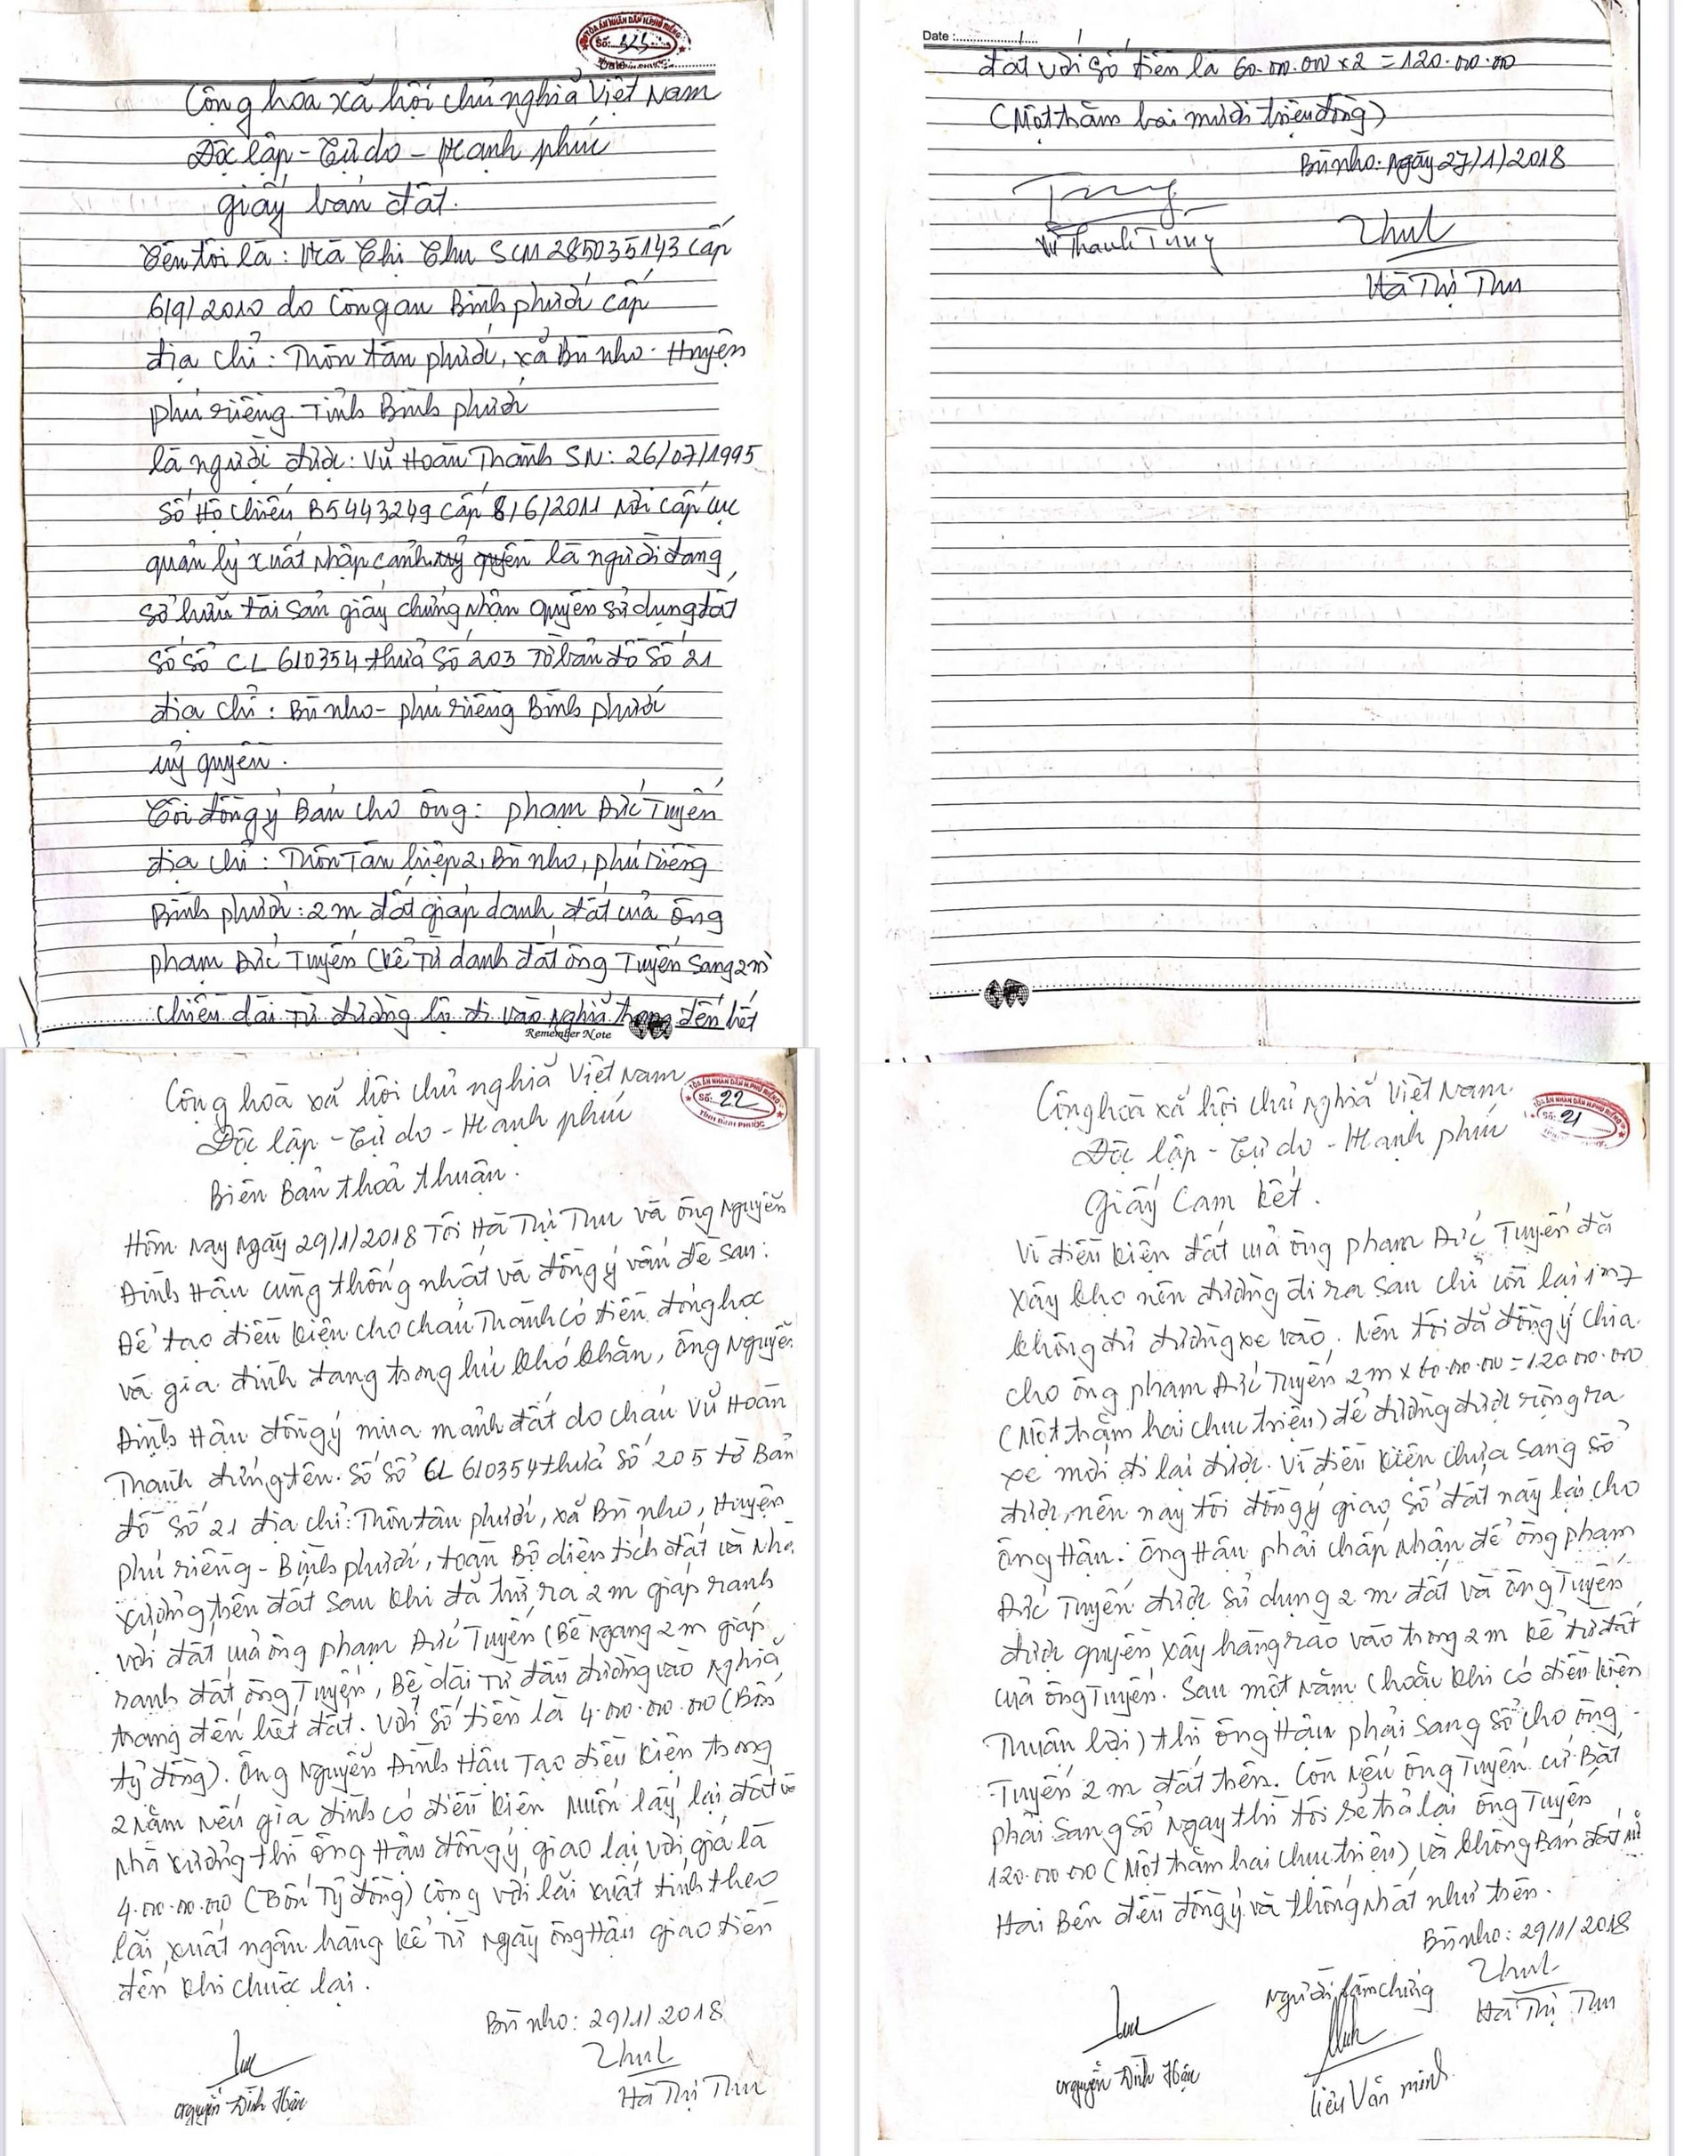 TÒA ÁN NHÂN DÂN H.PHÚ RIỀNG
Số:
Cộng hòa xã hội chủ nghĩa Việt Nam
Độc lập - Tự do - Hạnh phúc
giấy bán đất.
Tên tôi là: Hà Thị Thu SCM 285035143 cấp
6/9/2010 do Công an Bình phước cấp
địa chỉ: Thôn tân phước, xã Bù nho - Huyện
phú riềng Tỉnh Bình phước
là người được: Vũ Hoàn Thành SN: 26/07/1995
Số Hộ chiếu B5443249 cấp 8/6/2011 Nơi cấp cục
quản lý xuất nhập cảnh là người đang
sở hữu tài sản giấy chứng nhận quyền sử dụng đất
Số sổ CL 610354 thửa số 203 Tờ bản đồ số 21
địa chỉ: Bù nho - phú riềng Bình phước
uỷ quyền.
Tôi đồng ý Bán cho ông: phạm Đức Tuyến
địa chỉ: Thôn Tân hiệp 2, Bù nho, phú riềng
Bình phước: 2m đất giáp danh đất của ông
phạm Đức Tuyến (kể Từ danh đất ông Tuyến sang 2m
chiều dài từ đường lộ đi vào nghĩa trang đến hết
Remember Note
Date:
đất với số tiền là 60.000.000 x 2 = 120.000.000
(Một trăm hai mươi triệu đồng)
Bù nho: Ngày 27/1/2018
Vũ Thanh Tùng
Thu
Hà Thị Thu
Cộng hòa xã hội chủ nghĩa Việt Nam
TÒA ÁN NHÂN DÂN H.PHÚ RIỀNG
Số: 22
TỈNH BÌNH PHƯỚC
Độc lập - Tự do - Hạnh phúc
Biên Bản thoả thuận.
Hôm nay ngày 29/1/2018 Tôi Hà Thị Thu và ông Nguyễn
Đình Hậu cùng thống nhất và đồng ý vấn đề sau:
Để tạo điều kiện cho cháu Thành có tiền đóng học
và gia đình đang trong lúc khó khăn, ông Nguyễn
Đình Hậu đồng ý mua mảnh đất do cháu Vũ Hoàn
Thành đứng tên. Số sổ CL 610354 thửa số 205 tờ Bản
đồ số 21 địa chỉ: Thôn tân phước, xã Bù nho, Huyện
phú riềng - Bình phước, toàn Bộ diện tích đất và Nhà
xưởng trên đất sau khi đã trừ ra 2m giáp ranh
với đất của ông phạm Đức Tuyến (Bề Ngang 2m giáp
ranh đất ông Tuyến, Bề dài từ đầu đường vào nghĩa
trang đến hết đất. Với số tiền là 4.000.000.000 (Bốn
tỷ đồng). Ông Nguyễn Đình Hậu Tạo điều kiện trong
2 năm nếu gia đình có điều kiện muốn lấy lại đất và
nhà xưởng thì ông Hậu đồng ý giao lại với giá là
4.000.000.000 (Bốn Tỷ đồng) cộng với lãi xuất tính theo
lãi xuất ngân hàng kể từ ngày ông Hậu giao tiền
đến khi chuộc lại.
Bù nho: 29/1/2018
Thu
Nguyễn Đình Hậu
Hà Thị Thu
Cộng hòa xã hội chủ nghĩa Việt Nam
TÒA ÁN NHÂN DÂN H.PHÚ RIỀNG
Số: 21
Độc lập - Tự do - Hạnh phúc
Giấy Cam kết.
Vì điều kiện đất của ông phạm Đức Tuyến đã
xây kho nên đường đi ra sau chỉ còn lại 1m7
không đủ đường xe vào. Nên tôi đã đồng ý chia
cho ông phạm Đức Tuyến 2m x 60.000.000 = 120.000.000
(Một trăm hai chục triệu) để đường được rộng ra
xe mới đi lại được. Vì điều kiện chưa sang sổ
được, nên nay tôi đồng ý giao sổ đất này lại cho
ông Hậu. Ông Hậu phải chấp nhận để ông phạm
Đức Tuyến được sử dụng 2m đất và ông Tuyến
được quyền xây hàng rào vào trong 2m kể từ đất
của ông Tuyến. Sau một năm (hoặc khi có điều kiện
Thuận lợi) thì ông Hậu phải sang sổ cho ông
Tuyến 2m đất trên. Còn nếu ông Tuyến cứ Bắt
phải sang sổ ngay thì tôi sẽ trả lại ông Tuyến
120.000.000 (Một trăm hai chục triệu) và không Bán đất nữa
Hai Bên đều đồng ý và thống nhất như trên.
Bù nho: 29/1/2018
Người làm chứng
Thu
Hà Thị Thu
Nguyễn Đình Hậu
Liêu Văn Minh